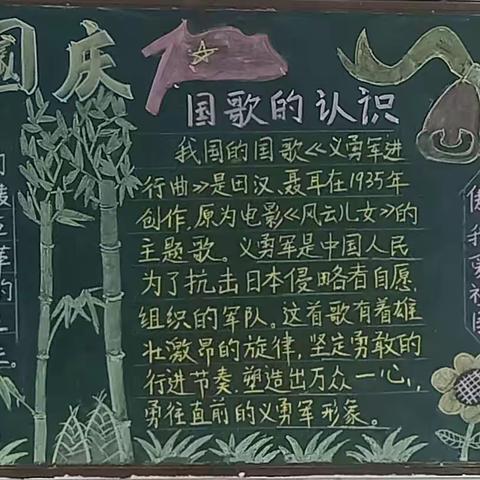 国庆
国歌的认识
我国的国歌《义勇军进
行曲》是田汉、聂耳在1935年
创作,原为电影《风云儿女》的
主题歌。义勇军是中国人民
为了抗击日本侵略者自愿,
组织的军队。这首歌有着雄
壮激昂的旋律,坚定勇敢的
行进节奏,塑造出万众一心,
勇往直前的义勇军形象。